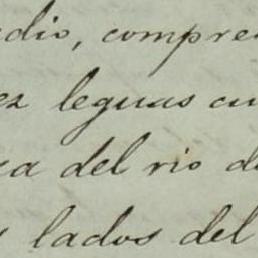 edio, compre
ez leguas cu
ca del rio d
s lados del